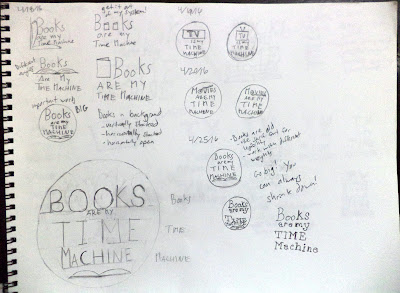 4/18/16
Books
are my
Time Machine
get it out
of my system!
Books
are my
Time Machine
different
angle
Books
Are My
Time Machine
important words
BIG
Books
are my
TIME
MACHINE
Books
ARE MY
TIME MACHINE
Books in background
- vertically stacked
- horizontally stacked
- horizontally open
4/19/16
TV
is my
TIME
MACHINE
TV
is my
TIME
MACHINE
4/20/16
MOVIES
ARE MY
TIME
MACHINE
MOVIES
ARE MY
TIME
MACHINE
4/25/16
Books
are my
TIME
MACHINE
- Books are old
use serif font for
- work with different
weights
Go big! You
can always
shrink down!
Books
are my
TIME
Books
are my
TIME
Machine
BOOKS
ARE MY
TIME
MACHINE
Books
TIME
MACHINE